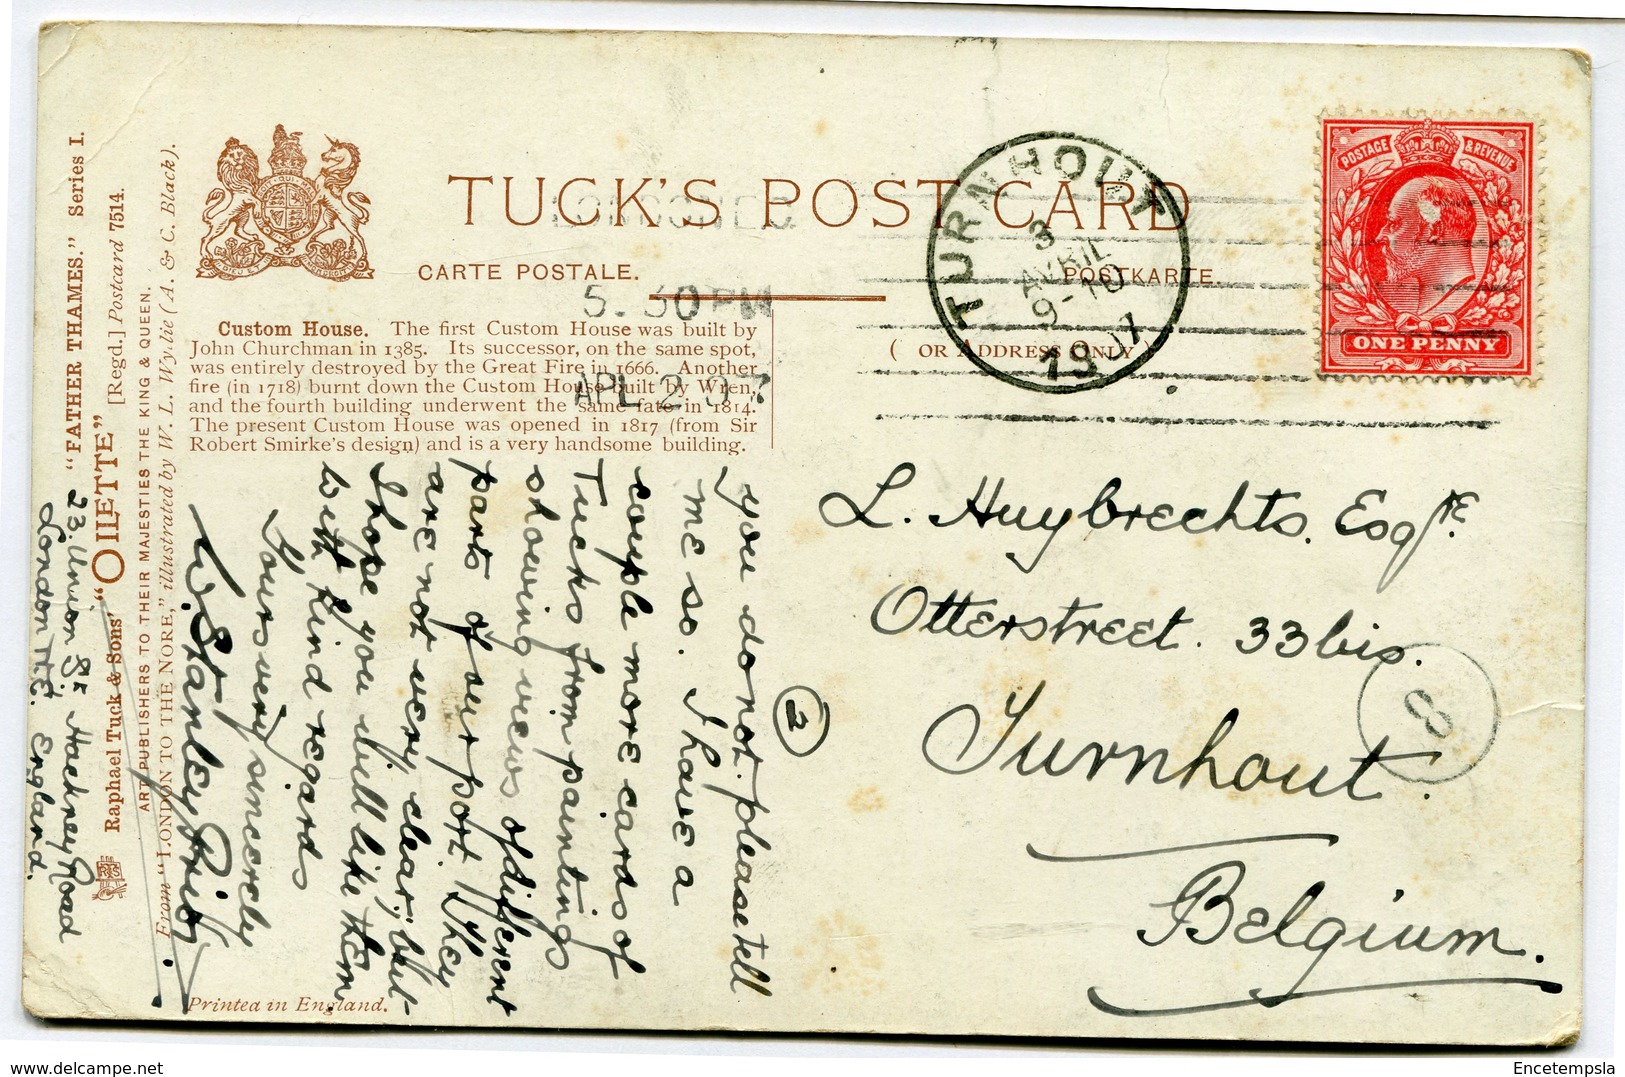 TUCK'S POST CARD
CARTE POSTALE.
POSTKARTE.
( OR ADDRESS ONLY
POSTAGE & REVENUE
ONE PENNY
TURNHOUT
3
AVRIL
9-10
1907
5.30PM
APL 2 07
Custom House. The first Custom House was built by
John Churchman in 1385. Its successor, on the same spot,
was entirely destroyed by the Great Fire in 1666. Another
fire (in 1718) burnt down the Custom House built by Wren,
and the fourth building underwent the same fate in 1814.
The present Custom House was opened in 1817 (from Sir
Robert Smirke's design) and is a very handsome building.
you do not. please tell
me so. I have a
couple more cards of
Tucks from paintings
showing views of different
parts of our port. They
are not very clear, but
I hope you will like them
with kind regards
Yours very sincerely
W. Stanley
2
L. Huybrechts. Esqre.
Otterstreet. 33bis.
Turnhout.
Belgium.
8
From "LONDON TO THE NORE," illustrated by W. L. Wyllie (A. & C. Black).
ART PUBLISHERS TO THEIR MAJESTIES THE KING & QUEEN.
Raphael Tuck & Sons' "OILETTE" [Regd.] Postcard 7514.
"FATHER THAMES." Series I.
23. Union St. Hackney Road
London N.E. England.
Printed in England.
www.delcampe.net
Encetempsla